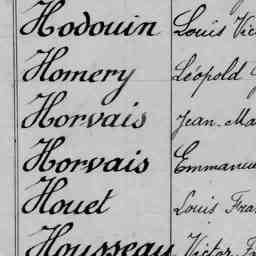 Hodouin Louis Vic
Homery Léopold
Horvais Jean-Ma
Horvais Emmanue
Houet Louis Fra
Housseau Victor F